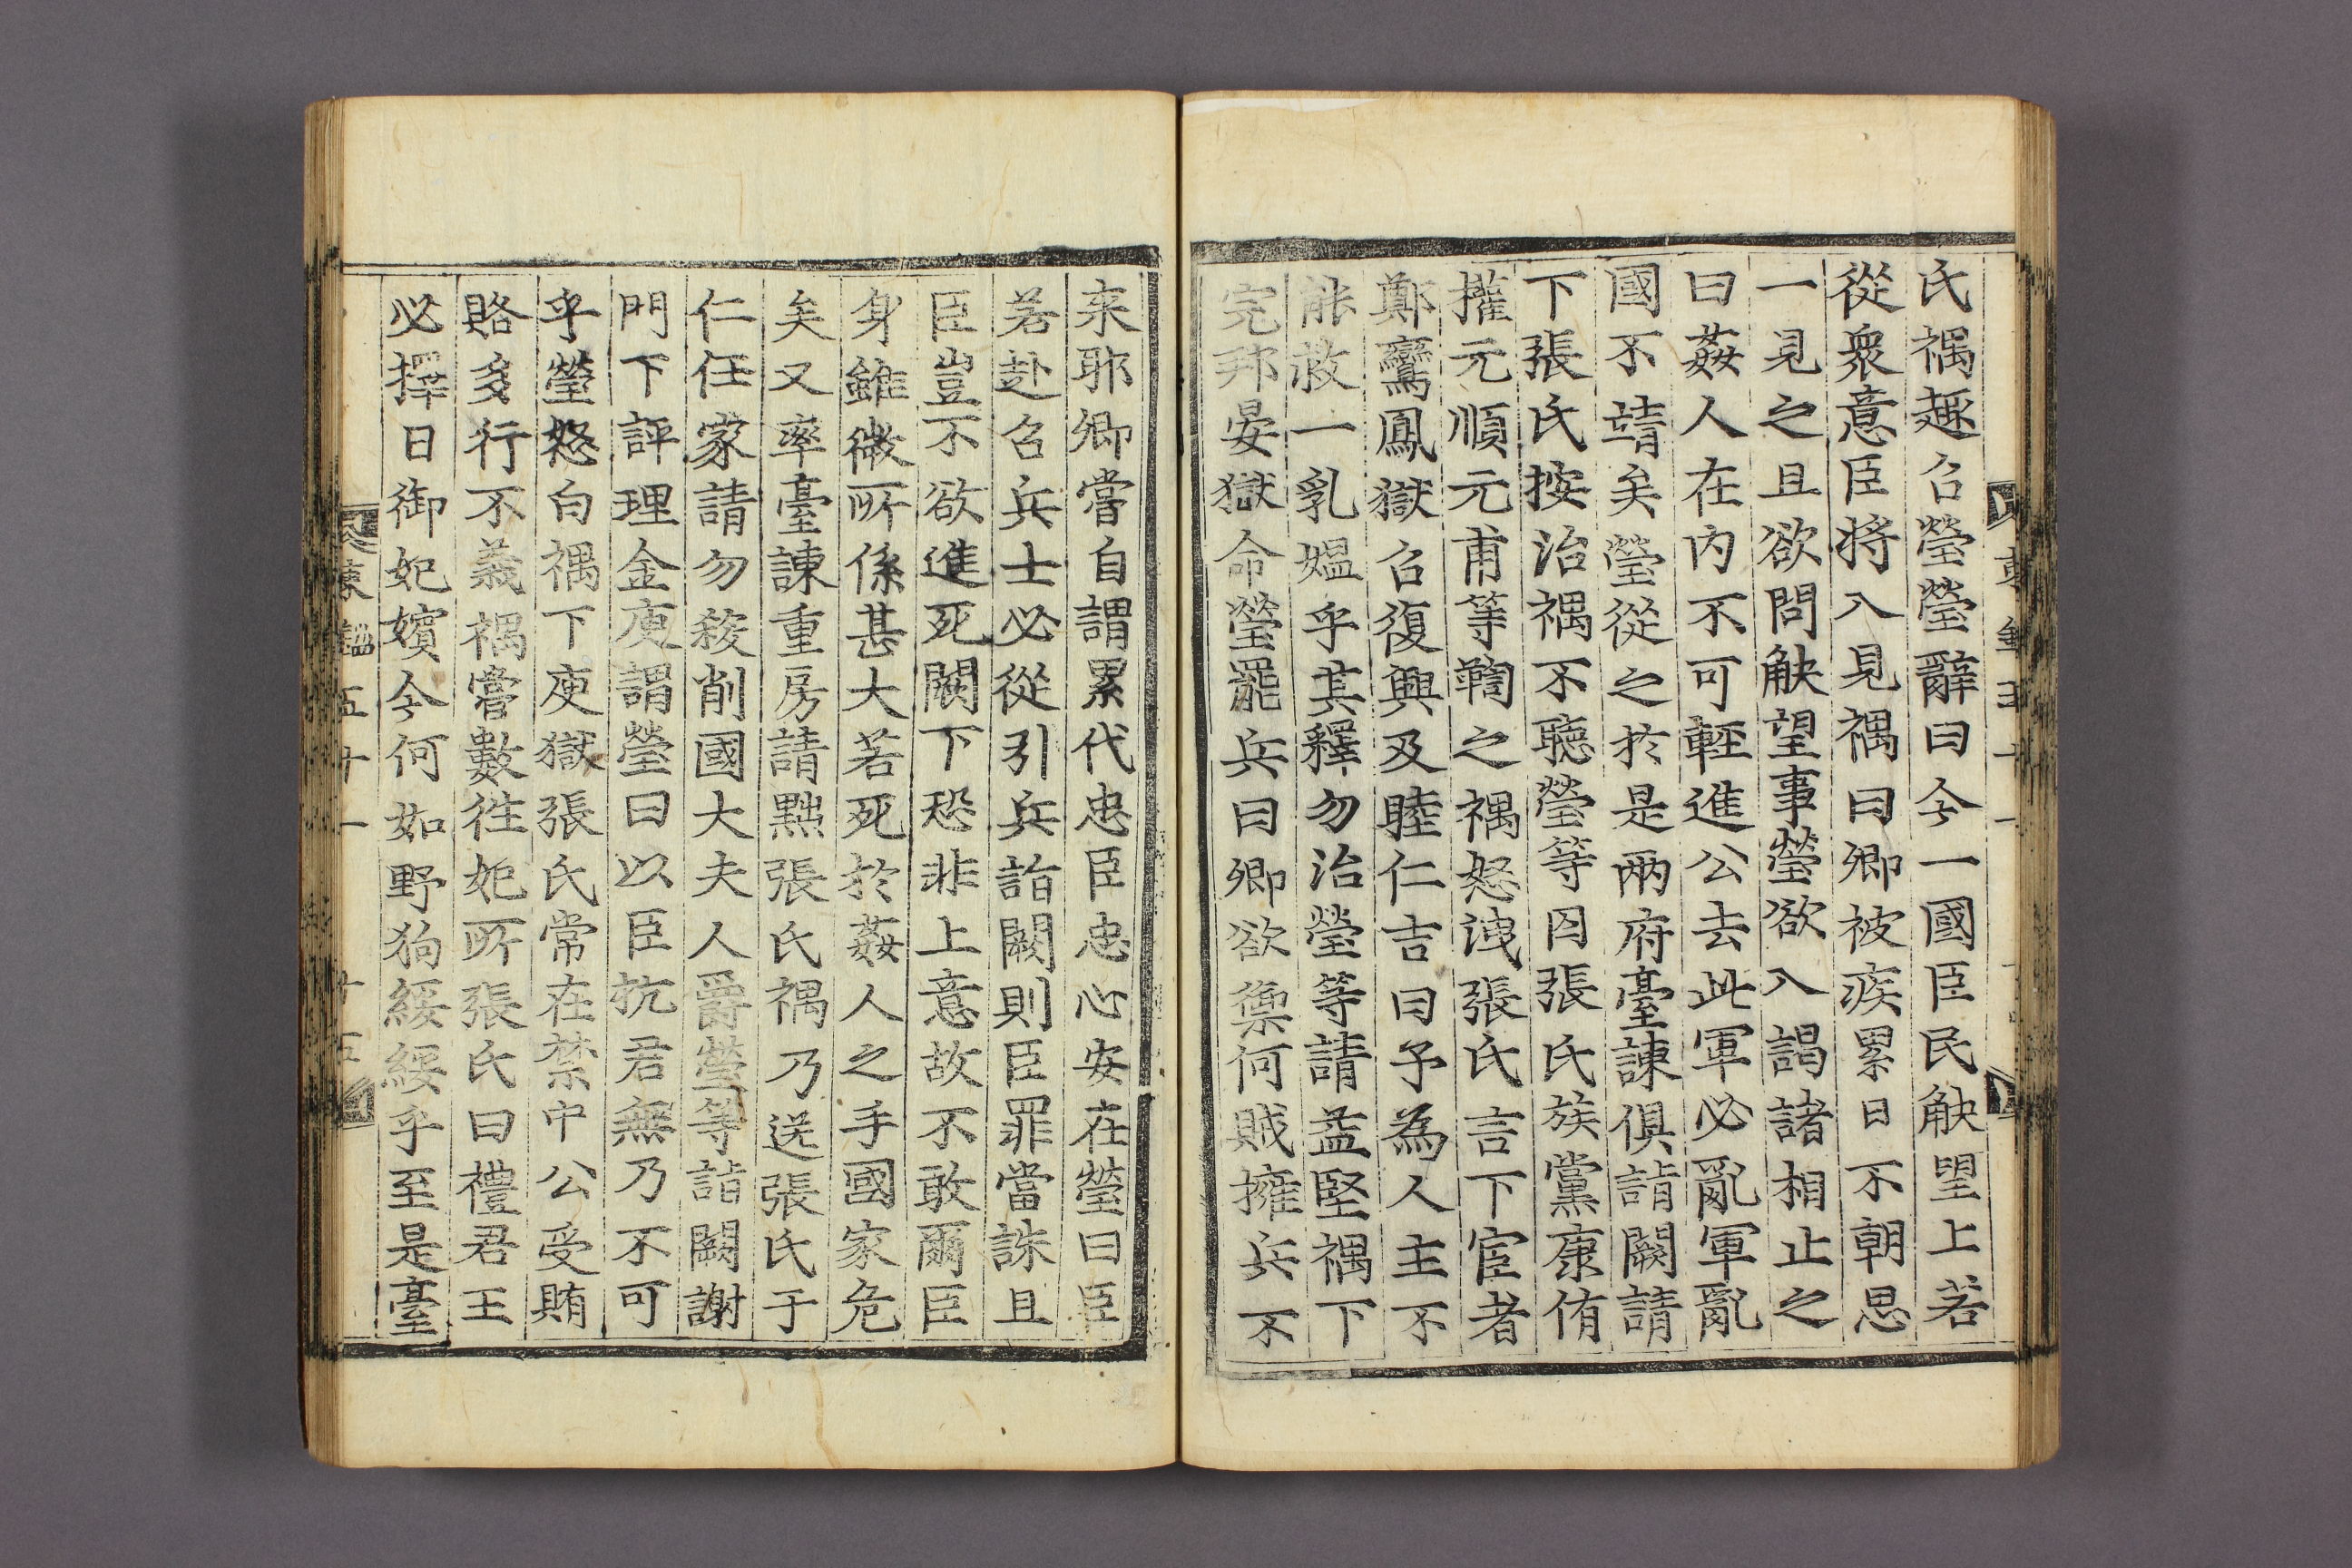 氏禑趣召瑩瑩辭曰今一國臣民觖望上若
從衆意臣將入見禑曰卿被疾累日不朝思
一見之且欲問觖望事瑩欲入謁諸相止之
曰姦人在內不可輕進公去此軍必亂軍亂
國不靖矣瑩從之於是兩府臺諫俱詣闕請
下張氏按治禑不聽瑩等囚張氏族黨康侑
權元順元甫等鞫之禑怒洩張氏言下宦者
鄭鸞鳳獄召復興及睦仁吉曰予為人主不
能救一乳媼乎其釋勿治瑩等請益堅禑下
完邦晏獄命瑩罷兵曰卿欲禦何賊擁兵不
来耶卿嘗自謂累代忠臣忠心安在瑩曰臣
若赴召兵士必從引兵詣闕則臣罪當誅且
臣豈不欲進死闕下恐非上意故不敢爾臣
身雖微所係甚大若死於姦人之手國家危
矣又率臺諫重房請黜張氏禑乃送張氏于
仁任家請勿殺削國大夫人爵瑩等詣闕謝
門下評理金庾謂瑩曰以臣抗君無乃不可
乎瑩怒白禑下庾獄張氏常在禁中公受賄
賂多行不義禑嘗數徃妃所張氏曰禮君王
必擇日御妃嬪今何如野狗綏綏乎至是臺
東鑑五十一 十五